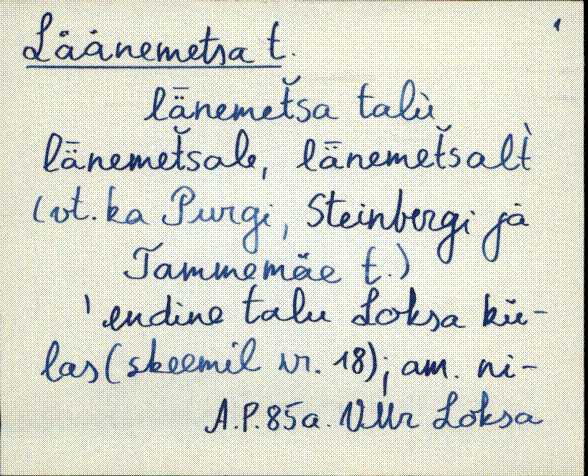 1
Läänemetsa t.
lǟnemet̆sa talù
lǟnemet̆sale, lǟnemet̆salt̀
(vt. ka Purgi, Steinbergi ja
Tammemäe t.)
'endine talu Loksa kü-
las (skeemil nr. 18); am. ni-
A.P. 85a. VMr Loksa